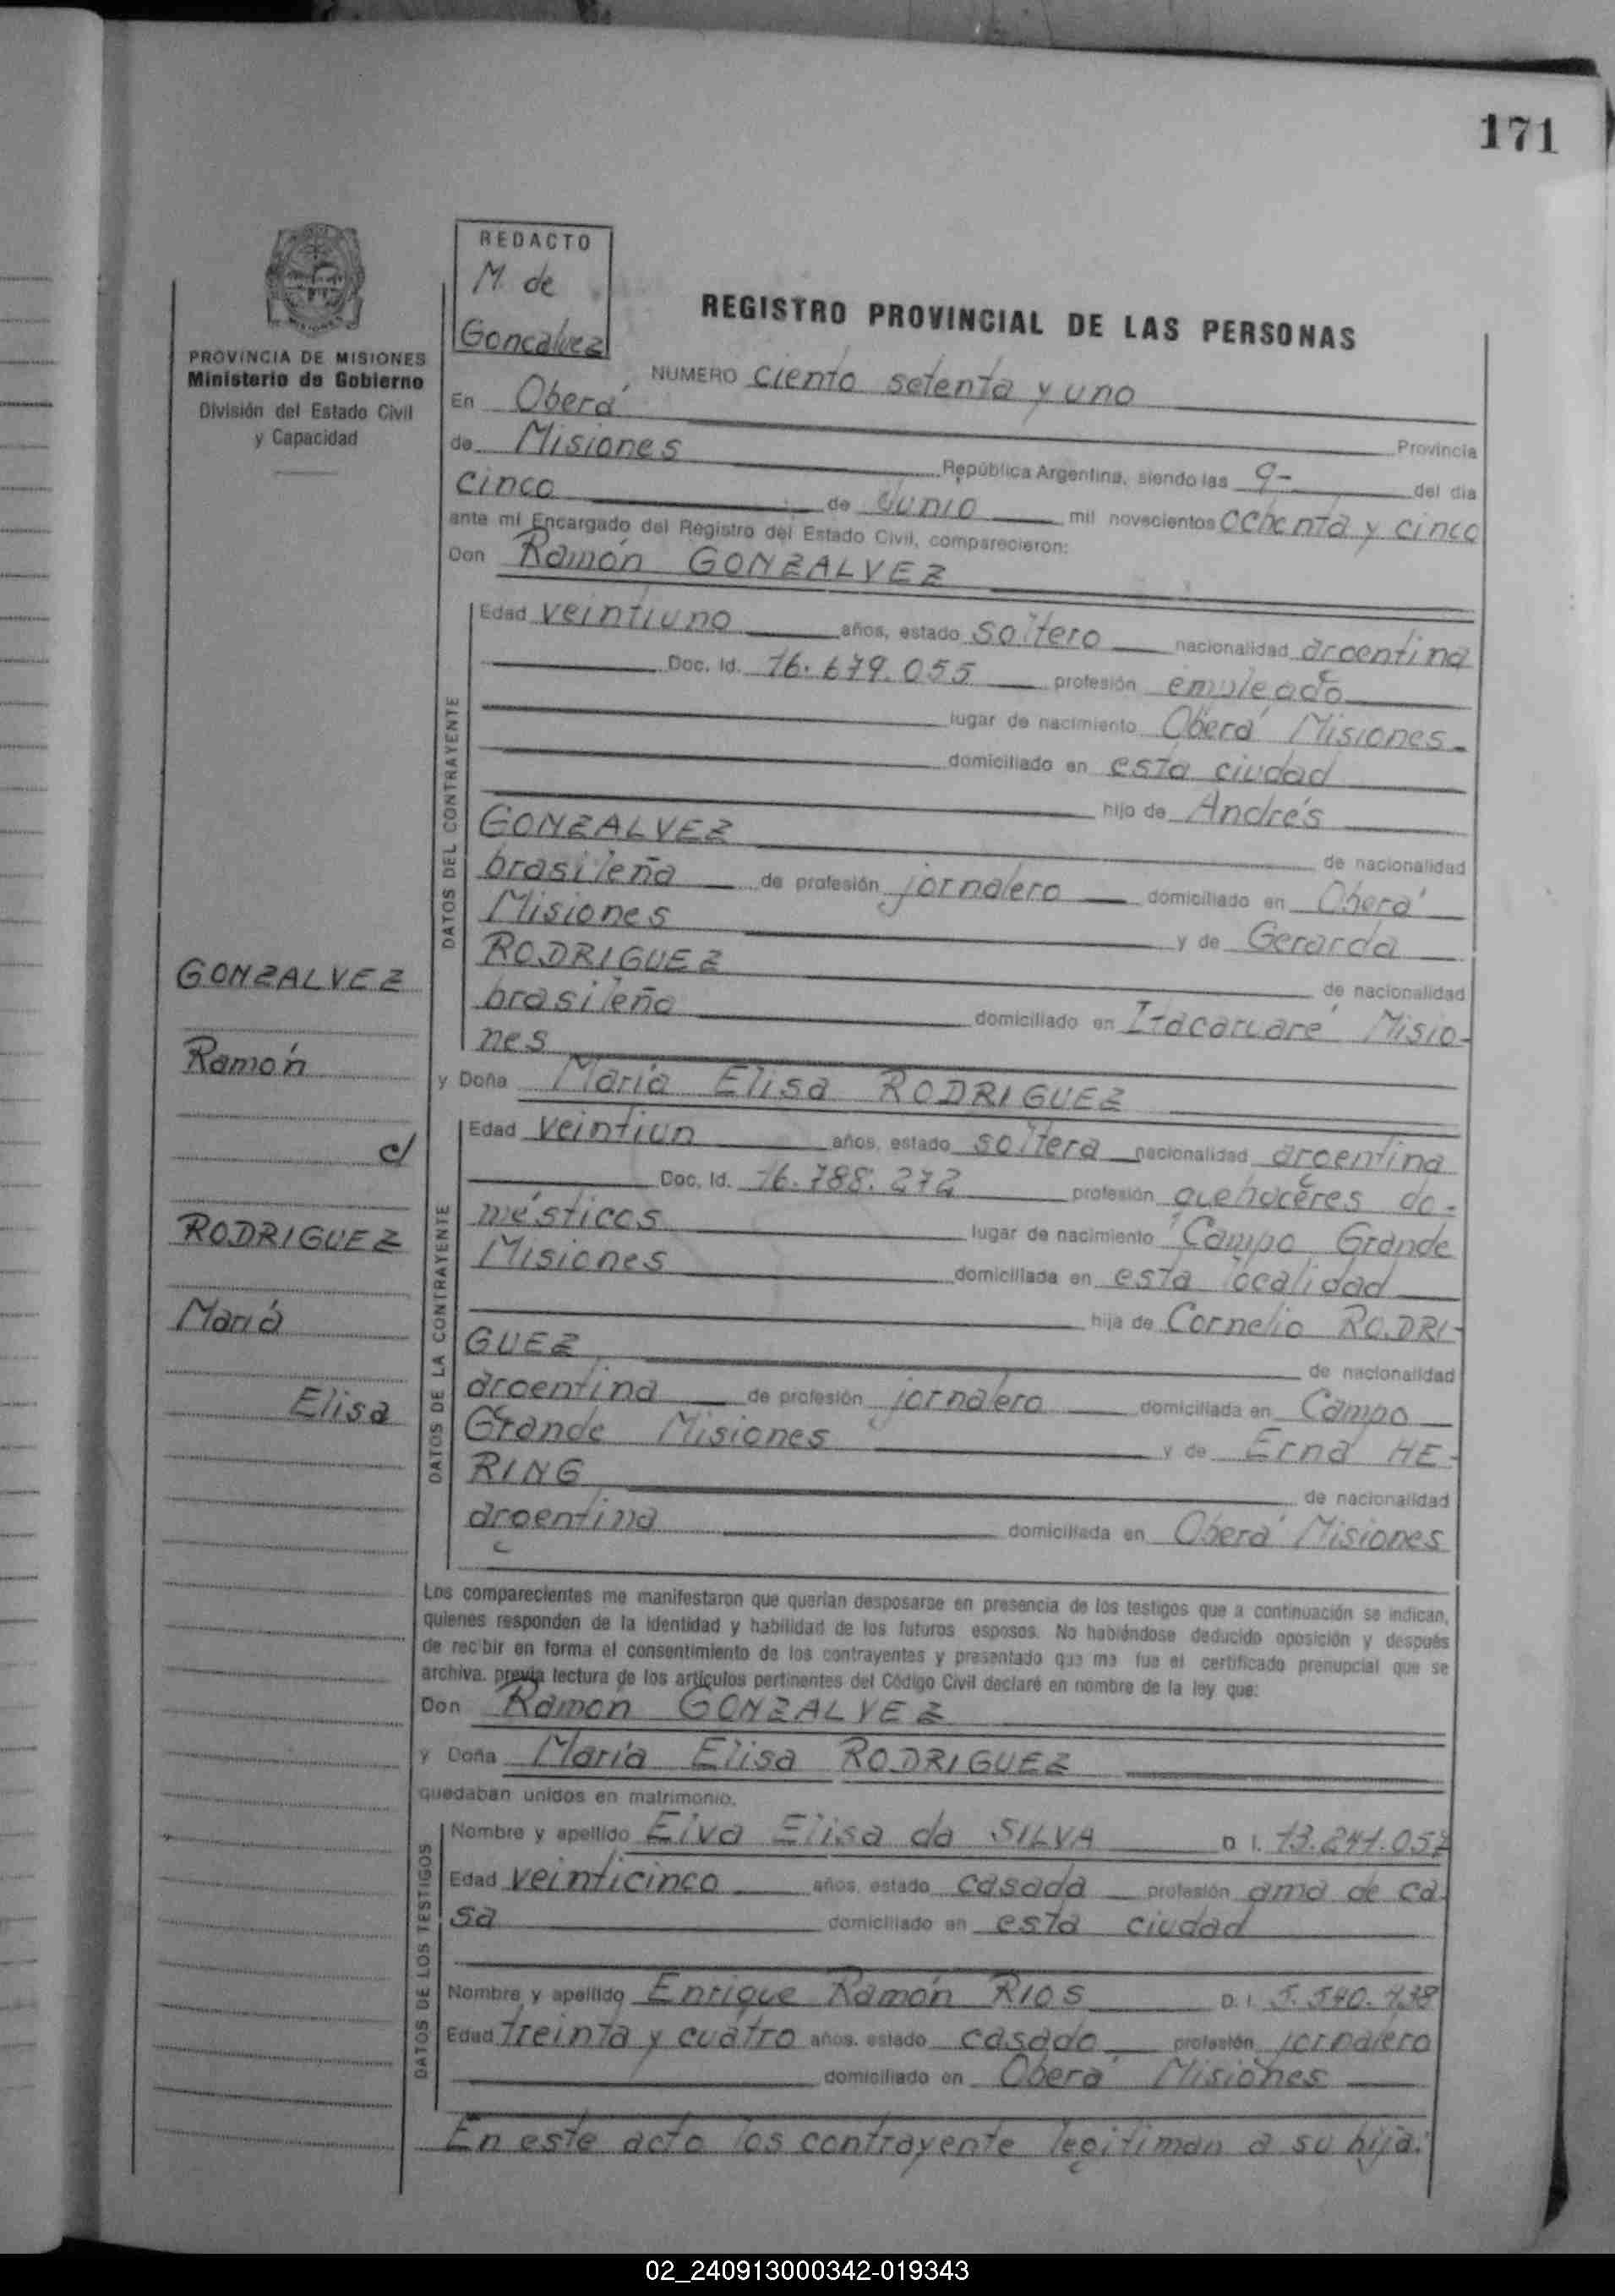 171
REDACTO
M. de
Goncalvez
PROVINCIA DE MISIONES
Ministerio de Gobierno
División del Estado Civil
y Capacidad
REGISTRO PROVINCIAL DE LAS PERSONAS
NUMERO ciento setenta y uno
En Oberá Provincia
de Misiones República Argentina, siendo las 9- del día
cinco de Junio mil novecientos ochenta y cinco
ante mí Encargado del Registro del Estado Civil, comparecieron:
Don Ramón GONZALVEZ
DATOS DEL CONTRAYENTE
Edad veintiuno años, estado soltero nacionalidad argentina
Doc. Id. 16.679.055 profesión empleado
lugar de nacimiento Oberá Misiones-
domiciliado en esta ciudad
hijo de Andrés
GONZALVEZ de nacionalidad
brasileña de profesión jornalero domiciliado en Oberá
Misiones y de Gerarda
RODRIGUEZ de nacionalidad
brasileña domiciliado en Itacaruaré Misio-
nes
y Doña María Elisa RODRIGUEZ
DATOS DE LA CONTRAYENTE
Edad veintiun años, estado soltera nacionalidad argentina
Doc. Id. 16.788.272 profesión quehaceres do-
mésticos lugar de nacimiento Campo Grande
Misiones domiciliada en esta localidad
hija de Cornelio RODRI-
GUEZ de nacionalidad
argentina de profesión jornalero domiciliada en Campo
Grande Misiones y de Erna HE-
RING de nacionalidad
argentina domiciliada en Oberá Misiones
GONZALVEZ
Ramón
c/
RODRIGUEZ
María
Elisa
Los comparecientes me manifestaron que querían desposarse en presencia de los testigos que a continuación se indican,
quienes responden de la identidad y habilidad de los futuros esposos. No habiéndose deducido oposición y después
de recibir en forma el consentimiento de los contrayentes y presentado que me fue el certificado prenupcial que se
archiva. previa lectura de los artículos pertinentes del Código Civil declaré en nombre de la ley que:
Don Ramon GONZALVEZ
y Doña María Elisa RODRIGUEZ
quedaban unidos en matrimonio.
DATOS DE LOS TESTIGOS
Nombre y apellido Elva Elisa da SILVA D. I. 13.241.057
Edad veinticinco años, estado casada profesión ama de ca-
sa domiciliado en esta ciudad
Nombre y apellido Enrique Ramón RIOS D. I. 5.540.
Edad treinta y cuatro años. estado casado profesión jornalero
domiciliado en Oberá Misiones
En este acto los contrayente legitiman a su hija:
02_240913000342-019343